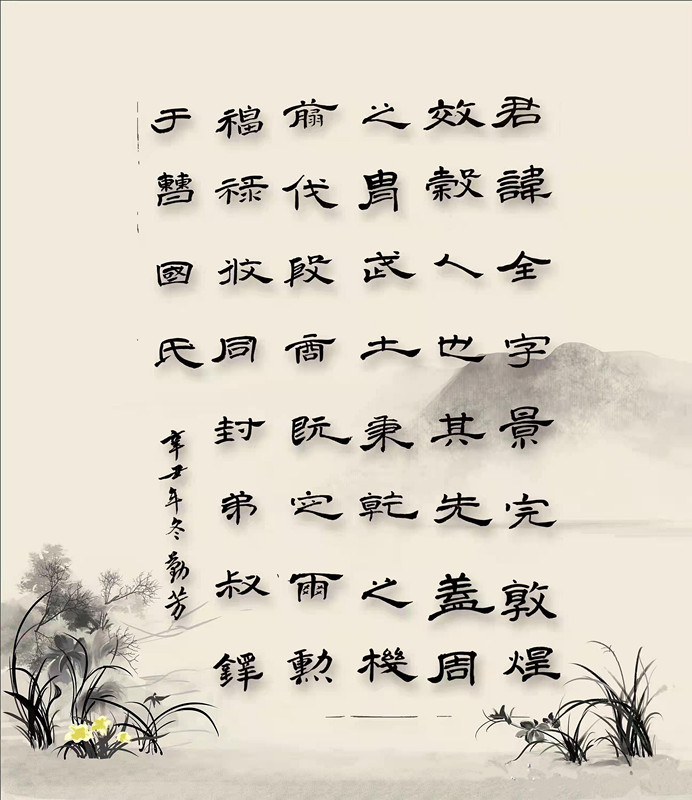 君諱全字景完敦煌
效穀人也其先蓋周
之胄武土秉乾之機
翦伐殷商既定爾勳
福祿攸同封弟叔鐸
于曹國氏
辛丑年冬勤芳